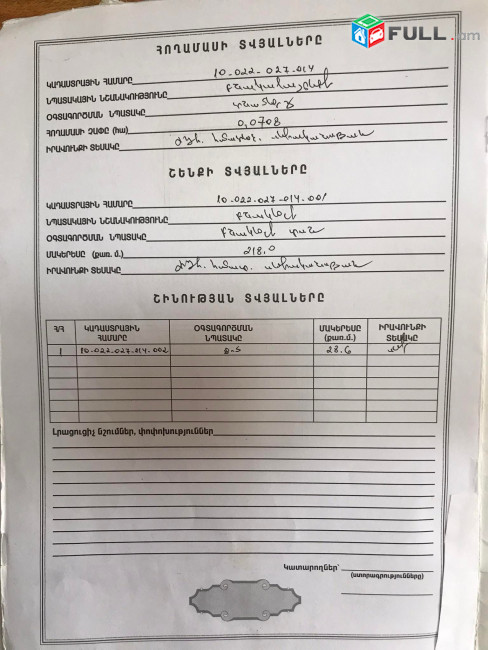 FULL.am
ՀՈՂԱՄԱՍԻ ՏՎՅԱԼՆԵՐԸ
ԿԱԴԱՍՏՐԱՅԻՆ ՀԱՄԱՐԸ 10-022-027-014
ՆՊԱՏԱԿԱՅԻՆ ՆՇԱՆԱԿՈՒԹՅՈՒՆԸ
ՕԳՏԱԳՈՐԾՄԱՆ ՆՊԱՏԱԿԸ
ՀՈՂԱՄԱՍԻ ՉԱՓԸ (հա) 0,0708
ԻՐԱՎՈՒՆՔԻ ՏԵՍԱԿԸ
ՇԵՆՔԻ ՏՎՅԱԼՆԵՐԸ
ԿԱԴԱՍՏՐԱՅԻՆ ՀԱՄԱՐԸ 10-022-027-014-001
ՆՊԱՏԱԿԱՅԻՆ ՆՇԱՆԱԿՈՒԹՅՈՒՆԸ բնակելի
ՕԳՏԱԳՈՐԾՄԱՆ ՆՊԱՏԱԿԸ բնակելի տան
ՄԱԿԵՐԵՍԸ (քառ. մ.) 218.0
ԻՐԱՎՈՒՆՔԻ ՏԵՍԱԿԸ
ՇԻՆՈՒԹՅԱՆ ՏՎՅԱԼՆԵՐԸ
Հ/Հ ԿԱԴԱՍՏՐԱՅԻՆ ՀԱՄԱՐԸ ՕԳՏԱԳՈՐԾՄԱՆ ՆՊԱՏԱԿԸ ՄԱԿԵՐԵՍԸ (քառ.մ.) ԻՐԱՎՈՒՆՔԻ ՏԵՍԱԿԸ
1 10-022-027-014-002 28.6
Լրացուցիչ նշումներ, փոփոխություններ
Կատարողներ՝
(ստորագրությունները)